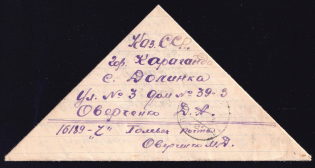 Каз. ССР
гор. Караганда
с. Долинка
Ул. № 3 дом № 39-3
Оверченко Д. А.
16189-"Z" Полевая почта
Оверченко М.Д.